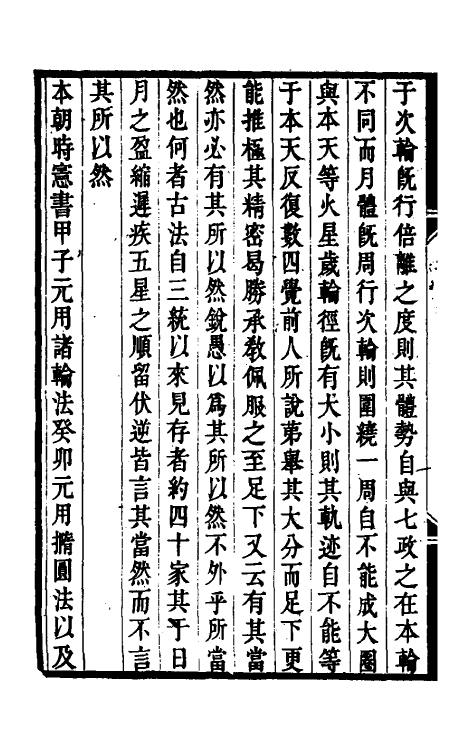 于次輪旣行倍離之度則其體勢自與七政之在本輪
不同而月體旣周行次輪則圍繞一周自不能成大圈
與本天等火星歲輪徑旣有大小則其軌迹自不能等
于本天反復數四覺前人所說苐舉其大分而足下更
能推極其精密曷勝承敎佩服之至足下又云有其當
然亦必有其所以然銳愚以爲其所以然不外乎所當
然也何者古法自三統以來見存者約四十家其于日
月之盈縮遲疾五星之順留伏逆皆言其當然而不言
其所以然
本朝時憲書甲子元用諸輪法癸卯元用撱圓法以及